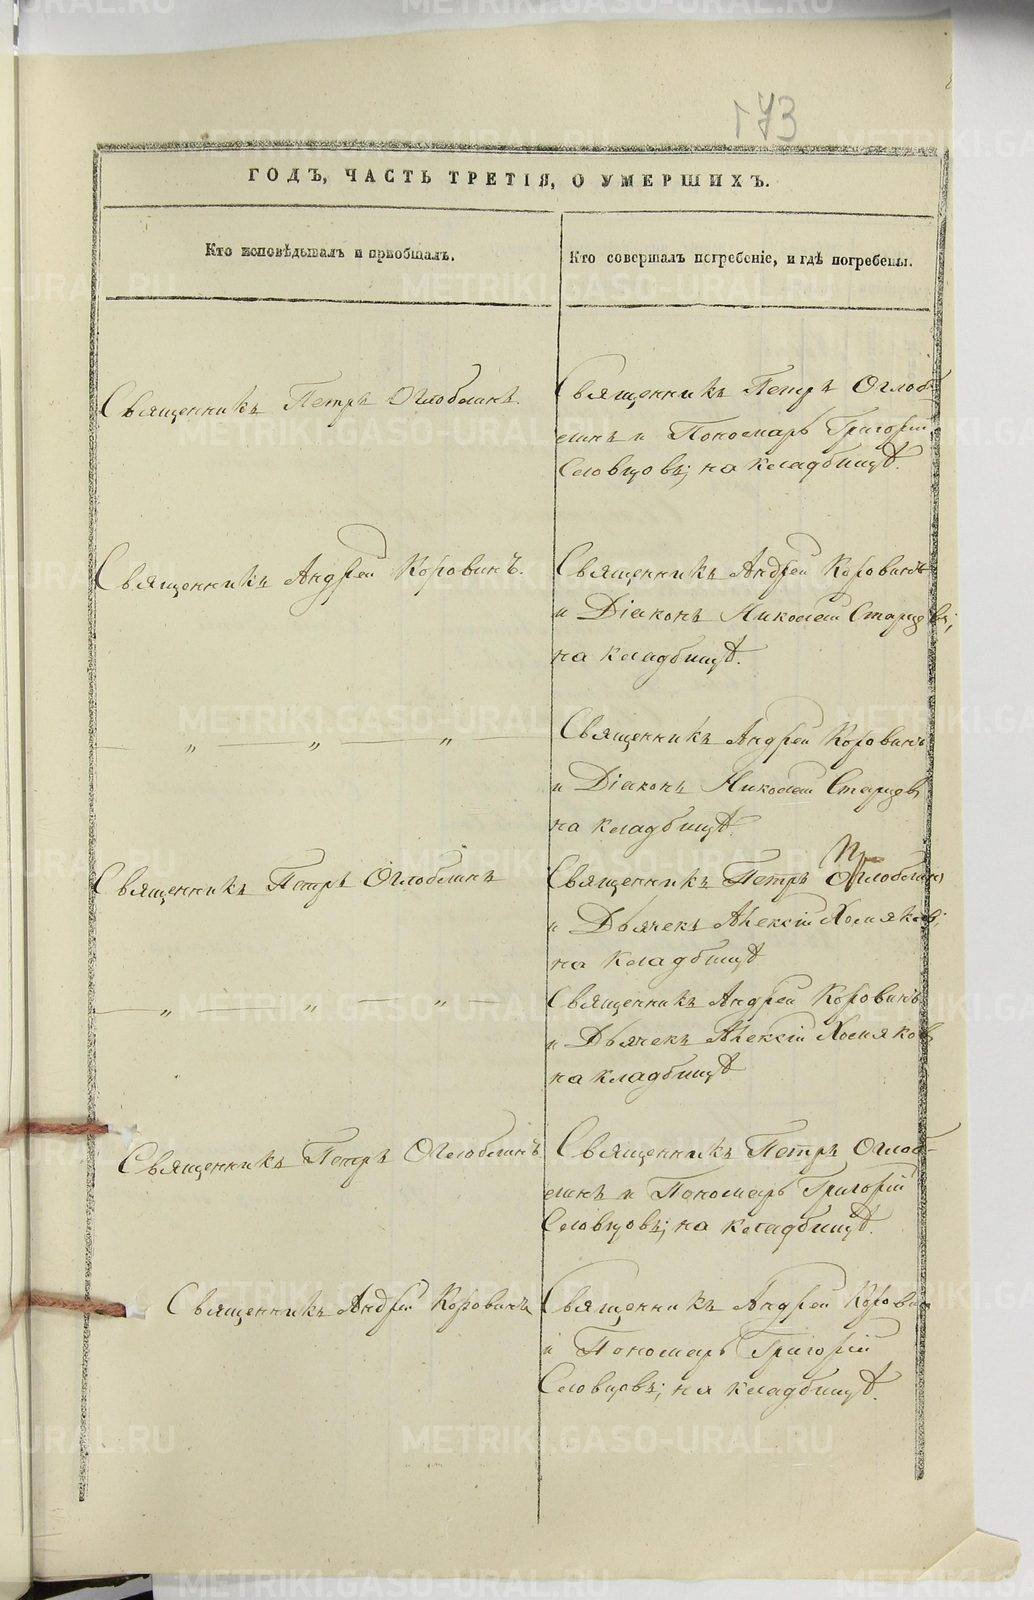 173
ГОДЪ, ЧАСТЬ ТРЕТІЯ, О УМЕРШИХЪ.
Кто исповѣдывалъ и пріобщалъ.
Кто совершалъ погребеніе, и гдѣ погребены.
Священникъ Петръ Оглоблинъ.
Священникъ Петръ Оглоб-
линъ и Пономарь Григорій
Словцовъ; на кладбищѣ.
Священникъ Андрей Коровинъ.
Священникъ Андрей Коровинъ
и Діаконъ Николай Старцевъ;
на кладбищѣ.
— „ — „ — „ —
Священникъ Андрей Коровинъ
и Діаконъ Николай Старцев
на кладбищѣ.
Священникъ Петръ Оглоблинъ
Священникъ Петръ Оглоблинъ
и Дьячекъ Алексій Хомяков;
на кладбищѣ
— „ — „ — „ —
Священникъ Андрей Коровинъ
и Дьячекъ Алексій Хомяков
на кладбищѣ
Священникъ Петръ Оглоблинъ
Священникъ Петръ Оглоб-
линъ и Пономарь Григорій
Словцовъ; на кладбищѣ.
Священникъ Андрей Коровинъ
Священникъ Андрей Коровин
и Пономарь Григорій
Словцовъ; на кладбищѣ.
METRIKI.GASO-URAL.RU